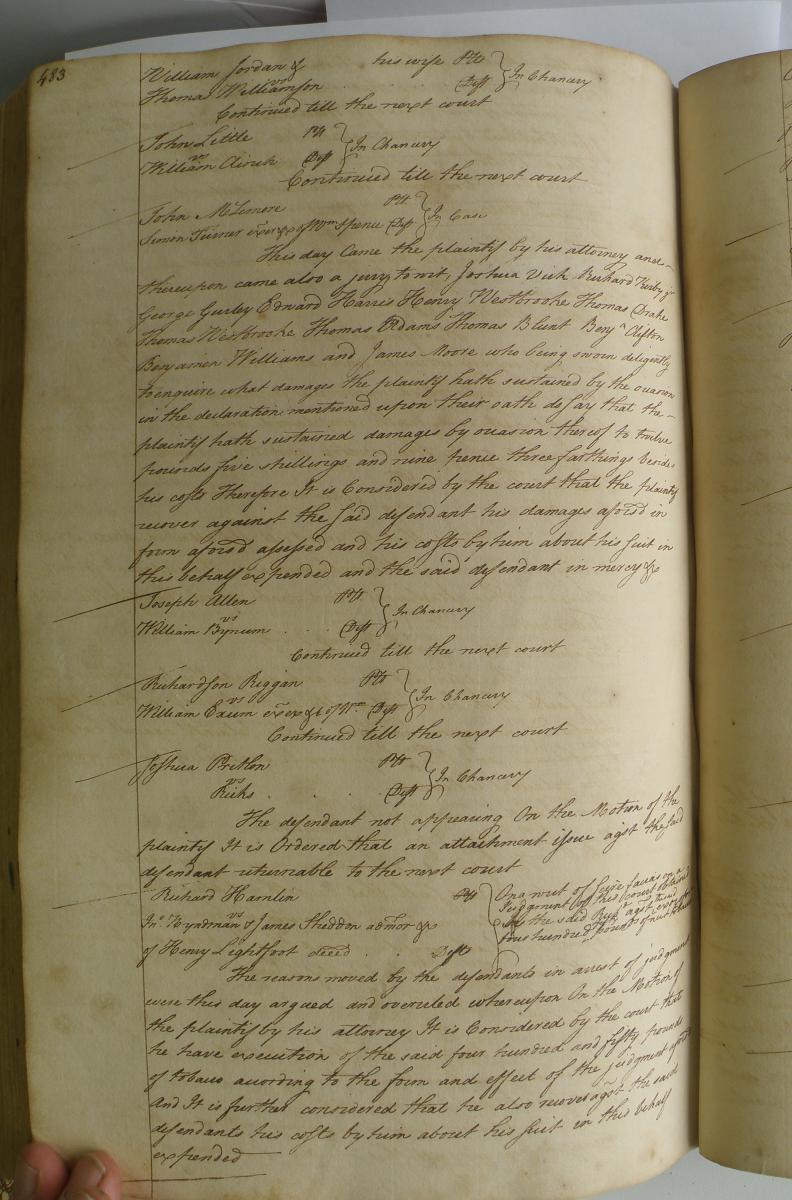 483
William Jordan & his wife Plts } In Chancery
vs
Thomas Williamson . . . Deft
Continued till the next court
John Little Plt } In Chancery
vs
William Clinch Deft
Continued till the next court
John McLemore Plt } In Case
Simon Turner exer &c of Wm Spence Deft
This day Came the plaintif by his attorney and
thereupon came also a jury to wit, Joshua Vick Richard Kirby
George Gurley Edward Harris Henry Westbrooke Thomas Drake
Thomas Westbrooke Thomas Adams Thomas Blunt Benjn Clifton
Benjamin Williams and James Moore who being sworn diligently
to enquire what damages the plaintif hath sustained by the ocasion
in the declaration mentioned upon their oath do say that the
plaintif hath sustained damages by ocasion thereof to twelve
pounds five shillings and nine pence three farthings besides
his costs Therefore It is Considered by the court that the plaintif
recover against the said defendant his damages aforsd in
form aforsd assessed and his costs by him about his suit in
this behalf expended and the said defendant in mercy &c
Joseph Allen Plt } In Chancery
vs
William Bynum . . . Deft
Continued till the next court
Richardson Riggan Plt } In Chancery
vs
William Exum Deft
Continued till the next court
Joshua Pretlon Plt } In Chancery
vs
Ricks . . . . Deft
The defendant not appearing On the Motion of the
plaintif It is Ordered that an attachment issue agst the said
defendant returnable to the next court
Richard Hamlin Plt } On a writ of scire facias on a
Judgment of this court obtained
vs
Jno Hyndman & James Sheddon admor &c
four hundred
of Henry Lightfoot deced . . Defts
The reasons moved by the defendants in arrest of judgment
were this day argued and overuled whereupon On the Motion of
the plaintif by his attorney It is Considered by the court that
he have execution of the said four hundred and fifty pounds
of tobaco acording to the form and effect of the judgment aforsd
And It is further considered that he also recover agst the said
defendants his costs by him about his suit in this behalf
expended